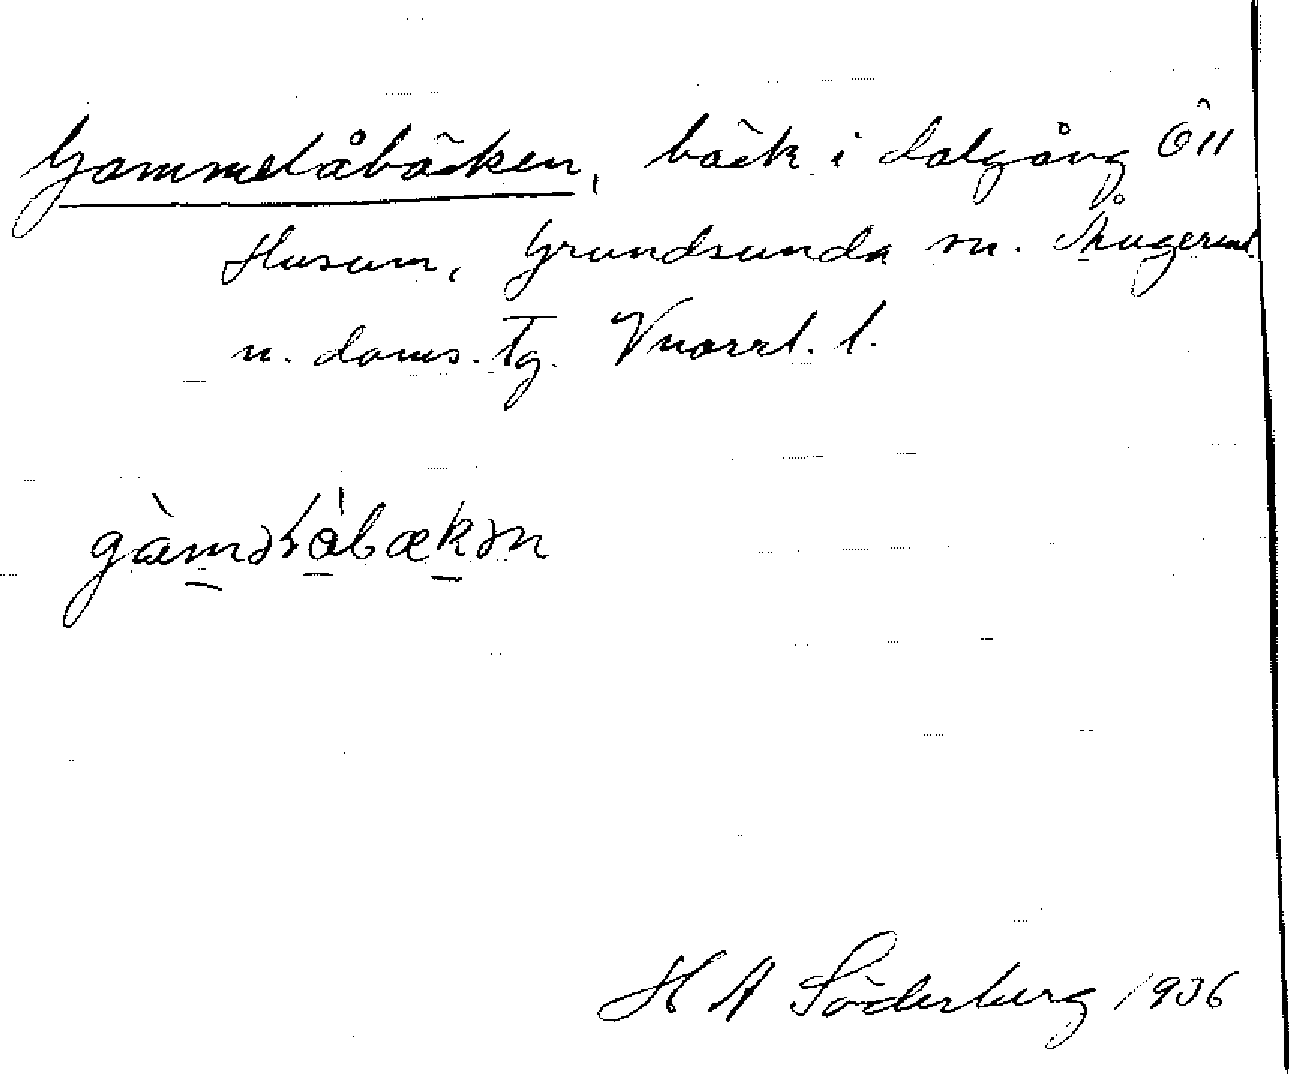 Gammelåbäcken, bäck i dalgång Ö11
Husum, Grundsunda sn. Ångerml.
n. doms. Tg. Vnorrl. l.
gàməlåbækən
H A Söderberg 1936